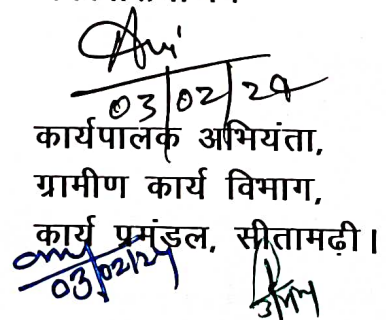 03/02/24
कार्यपालक अभियंता,
ग्रामीण कार्य विभाग,
कार्य प्रमंडल, सीतामढ़ी।
03/02/24